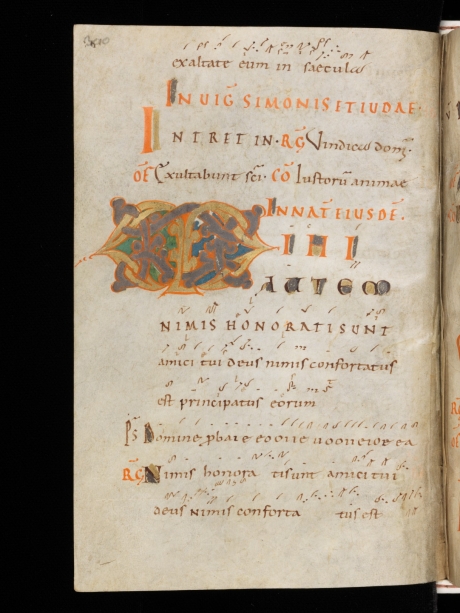 exaltate eum in saecula
IN UIG SIMONIS ET IUDAE·
INTRET IN· RG Vindica dom
OF Exultabunt sci· CO Iustorū animae
IN NAT EIUSDE·
MIHI
AUTEM
NIMIS HONORATI SUNT
amici tui deus nimis confortatus
est principatus eorum
Ps Domine pbare eoou uooneioe ea
RG Nimis honora tisunt amici tui
deus nimis conforta tus est